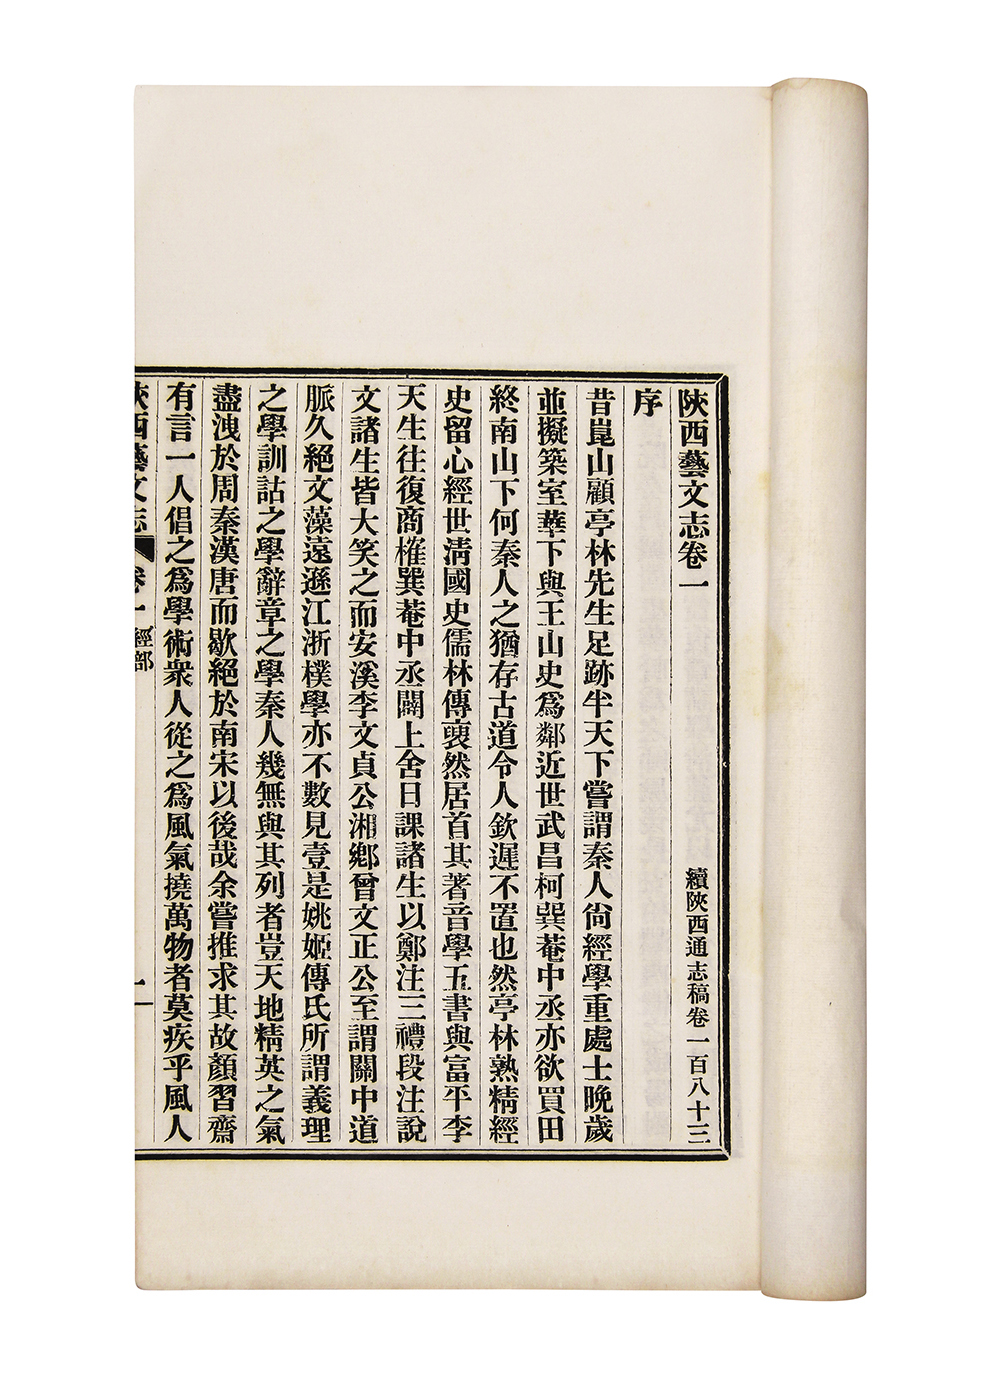 陝西藝文志卷一
續陝西通志稿卷一百八十三
序
昔崑山顧亭林先生足跡半天下嘗謂秦人尙經學重處士晚歲
並擬築室華下與王山史爲鄰近世武昌柯巽菴中丞亦欲買田
終南山下何秦人之猶存古道令人欽遲不置也然亭林熟精經
史留心經世淸國史儒林傳裒然居首其著音學五書與富平李
天生往復商搉巽菴中丞闢上舍日課諸生以鄭注三禮段注說
文諸生皆大笑之而安溪李文貞公湘鄕曾文正公至謂關中道
脈久絕文藻遠遜江浙樸學亦不數見壹是姚姬傳氏所謂義理
之學訓詁之學辭章之學秦人幾無與其列者豈天地精英之氣
盡洩於周秦漢唐而歇絕於南宋以後哉余嘗推求其故顏習齋
有言一人倡之爲學術衆人從之爲風氣撓萬物者莫疾乎風人
陝西藝文志 卷一 經部 一